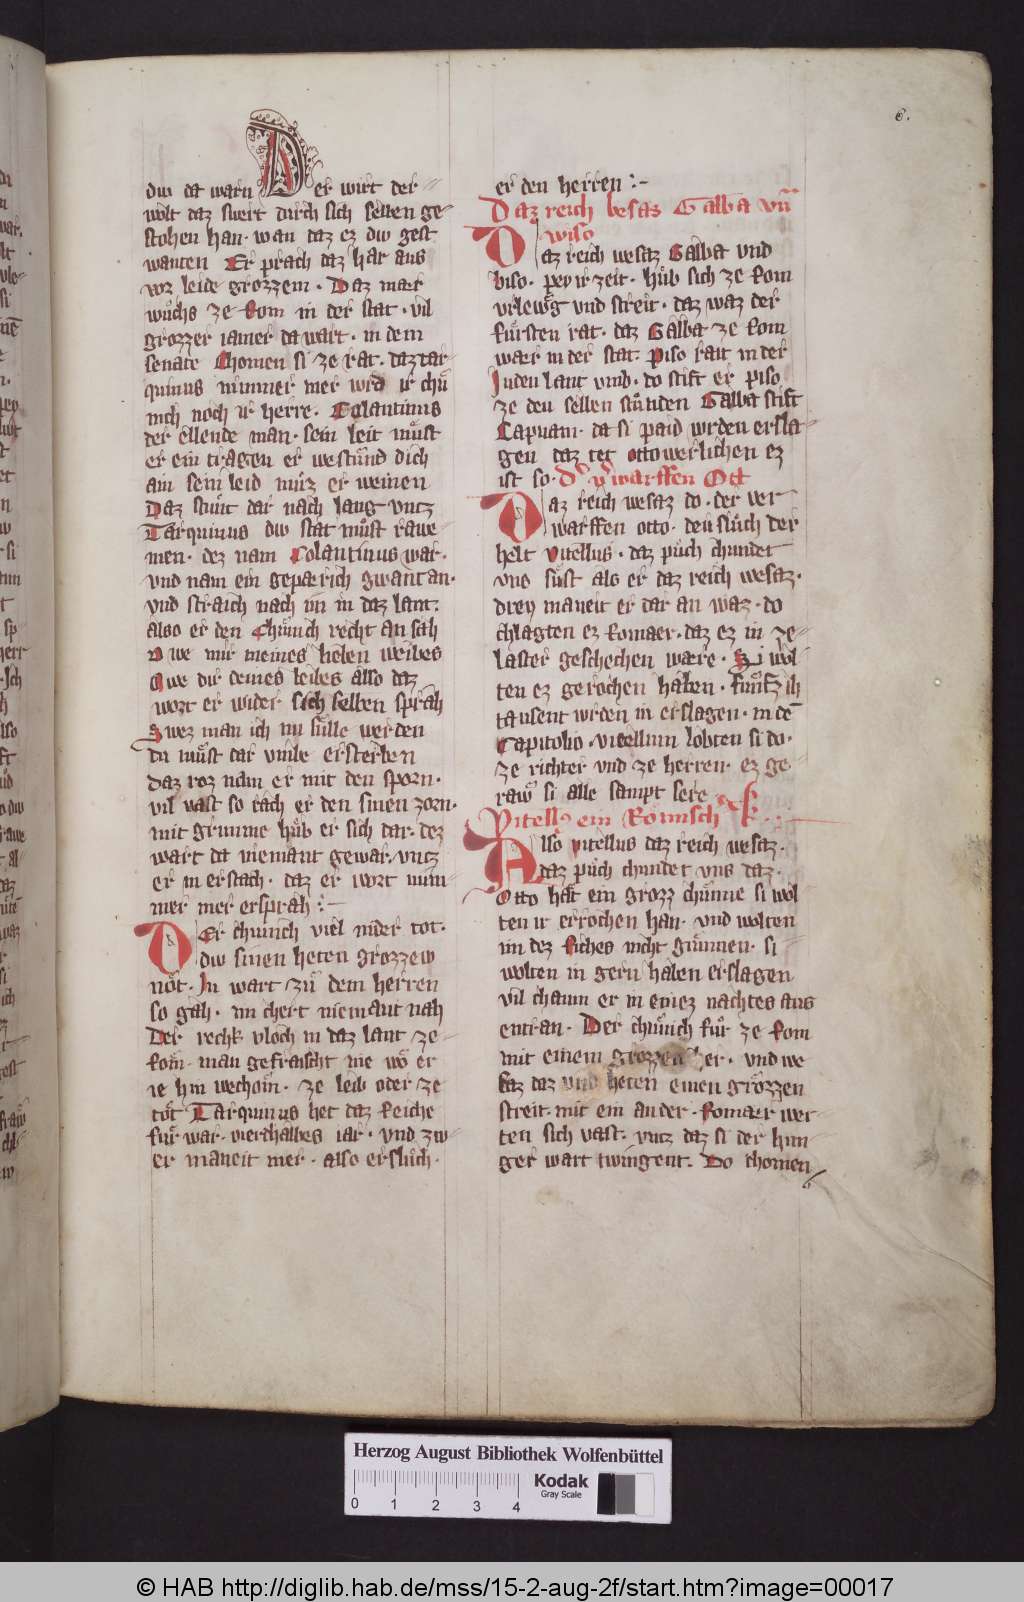 6.
diw da warn Der wirt der
wolt daz swert durch sich selben ge
stohen han · wan daz ez diw gest
wanten Er prach daz har aus
vor leide grozzem · Daz mær
wuͦchs ze Rom in der stat · vil
grozzer iamer da wart · in dem
senate Chomen si ze rat · daz tar
quinus nimmer mer wrd ir chuͤ
nich noch ir herre · Colantinus
der ellende man · sein leit muͤst
er ein tragen er westuͦnd dich
am sein leid muͦz er weinen
Daz stuͦnt dar nach lang vntz
Tarquinus diw stat muͦst rawe
men · dez nam Colantinus war ·
vnd nam ein gepærich gwant an ·
vnd straich nach im in daz lant ·
also er den Chuͤnich recht an sah
O we mir meines lieben weibes
Owe dir deines leibes allso daz
wort er wider sich selben sprah
Swez man ich nu suͤlle werden
du muͦst dar vmbe ersterben
Daz roz nam er mit den sporn ·
vil vast so rach er den sinen zorn ·
mit grimme huͦb er sich dar · dez
wart da niemant gewar · vntz
er in erstach · daz er wort nim
mer mer ersprah :~
Der chuͤnich viel nider tot ·
diw sinen heten grozzew
noͤt · In wart zuͦ dem herren
so gah · im chert niemant nah
Der rechk vloch in daz lant ze
Rom · man gefraischt nie wo er
ie hin wechom · ze leib oder ze
tot Tarquinus het daz Reiche
fuͤr war · vierdhalbes iar · vnd zw
er maneit mer · also ersluͦch ·
er den herren :~
Daz reich besas Galba vn̄
wiso
Daz reich wesaz Galba vnd
biso · pey ir zeit · huͦb sich ze Rom
vrlewg vnd streit · daz waz der
fuͤrsten rat · daz Galba ze Rom
wær in der stat · Piso rait in der
Juden lant vmb · do stift er piso
ze den selben stuͦnden Galba stift
Capuam · da si paid wrden ersla
gen daz tet otto werlichen ez
ist so · Der verwarffen Ott
Daz reich wesaz do · der ver
warffen otto · den sluͦch der
helt vitellus · daz puͦch chundet
vns suͤst als er daz reich wesaz ·
drey maneit er dar an waz · do
chlagten ez Romaer · daz ez in ze
laster geschechen wære · Si wol
ten ez gerochen haben · fuͤmfzih
tausent wrden in erslagen · in de
Capitolio · vitellum lobten si do ·
ze richter vnd ze herren · ez ge
raw si alle sampt sere
Vitellus ein Romisch k
Also vitellus daz reich wesaz ·
daz puͦch chundet vns daz ·
Otto hat ein grozz chuͤnne si wol
ten ir errochen han · vnd wolten
im dez Riches nicht gunnen · si
wolten in gern haben erslagen
vil chaum er in einez nachtes aus
entran · Der chuͤnich fuͦr ze Rom
mit einem grozzen her · vnd we
saz daz vnd heten einen grozzen
streit · mit ein ander · Romaer wer
ten sich vast · vntz daz si der hun
ger wart twingent · Do chomen
Herzog August Bibliothek Wolfenbüttel
0 1 2 3 4
Kodak
Gray Scale
© HAB http://diglib.hab.de/mss/15-2-aug-2f/start.htm?image=00017